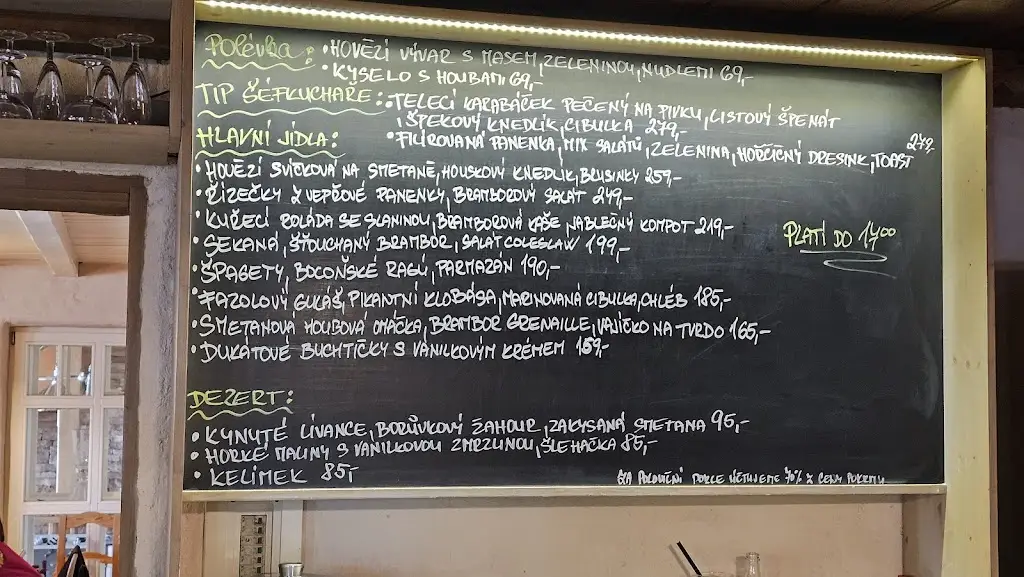 Polévka: • HOVĚZÍ VÝVAR S MASEM, ZELENINOU, NUDLEMI 69,-
• KYSELO S HOUBAMI 69,-
TIP ŠÉFKUCHAŘE: • TELECÍ KARABÁČEK PEČENÝ NA PIVKU, LISTOVÝ ŠPENÁT
, ŠPEKOVÝ KNEDLÍK, CIBULKA 279,-
• FILÍROVANÁ PANENKA, MIX SALÁTŮ, ZELENINA, HOŘČIČNÝ DRESINK, TOAST 249,-
HLAVNÍ JÍDLA:
• HOVĚZÍ SVÍČKOVÁ NA SMETANĚ, HOUSKOVÝ KNEDLÍK, BRUSINKY 259,-
• ŘÍZEČKY Z VEPŘOVÉ PANENKY, BRAMBOROVÝ SALÁT 249,-
• KUŘECÍ ROLÁDA SE SLANINOU, BRAMBOROVÁ KAŠE, JABLEČNÝ KOMPOT 219,-
• SEKANÁ, ŠŤOUCHANÝ BRAMBOR, SALÁT COLESLAW 199,-
• ŠPAGETY, BOLOŇSKÉ RAGÚ, PARMAZÁN 190,-
• FAZOLOVÝ GULÁŠ, PIKANTNÍ KLOBÁSA, MARINOVANÁ CIBULKA, CHLÉB 185,-
• SMETANOVÁ HOUBOVÁ OMÁČKA, BRAMBOR GRENAILLE, VAJÍČKO NA TVRDO 165,-
• DUKÁTOVÉ BUCHTIČKY S VANILKOVÝM KRÉMEM 159,-
PLATÍ DO 17:00
DEZERT:
• KYNUTÉ LÍVANCE, BORŮVKOVÝ ŽAHOUR, ZAKYSANÁ SMETANA 95,-
• HORKÉ MALINY S VANILKOVOU ZMRZLINOU, ŠLEHAČKA 85,-
• KELÍMEK 85,-
ZA POLOVIČNÍ PORCE ÚČTUJEME 70% Z CENY POKRMU